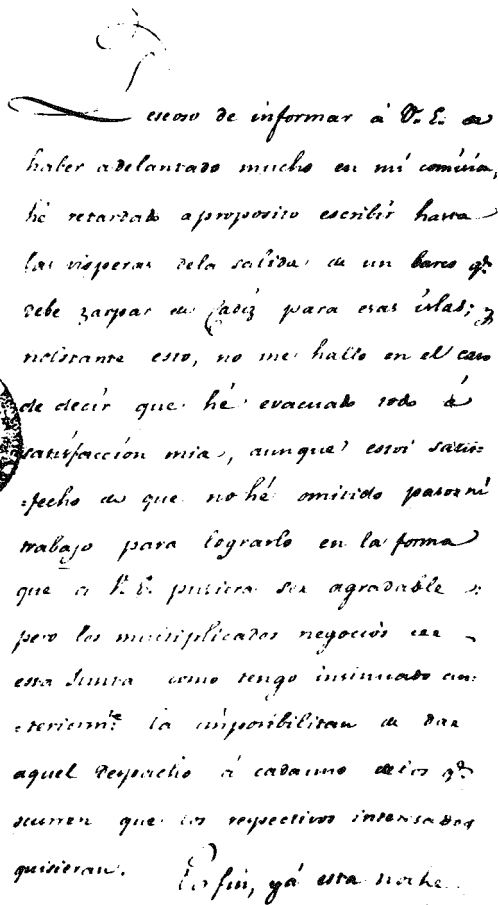 Deseoso de informar á V. E. de
haber adelantado mucho en mi comision,
hé retardado aproposito escribir hasta
las visperas dela salida de un barco qe.
debe zarpar de Cadiz para esas islas; y
nobstante esto, no me hallo en el caso
de decir que hé evacuado todo á
satisfacción mia, aunque estoi satis=
=fecho de que no hé omitido pasos ni
trabajo para lograrlo en la forma
que a V. E. pudiera ser agradable :
pero los multiplicados negocios de
esta Junta como tengo insinuado an=
=teriormte. la imposibilitan de dar
aquel despacho á cadauno delos qe.
ocurren que los respectivos interesados
quisieran. En fin, yá esta noche